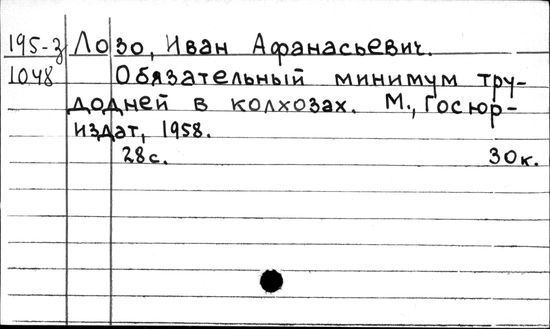 195-3 Лозо, Иван Афанасьевич.
1048 Обязательный минимум тру-
додней в колхозах. М., Госюр-
издат, 1958.
28с. 30к.